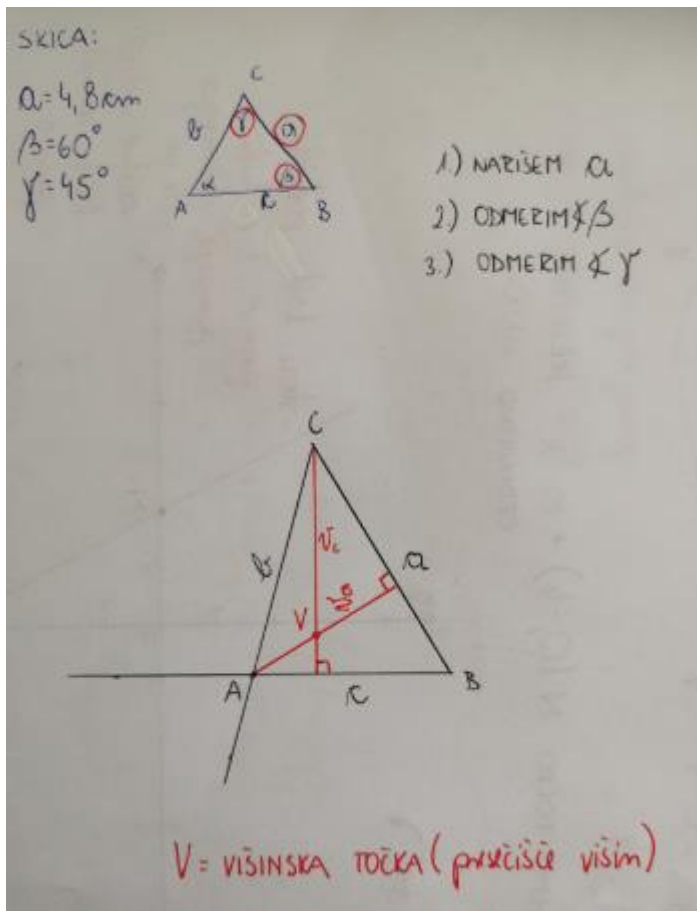 SKICA:
a=4,8cm
β=60°
γ=45°
C
b
γ
a
α
β
A
c
B
1.) NARIŠEM a
2.) ODMERIM ∢β
3.) ODMERIM ∢γ
C
b
v_c
a
v_a
V
A
c
B
V = VIŠINSKA TOČKA (presečišče višin)